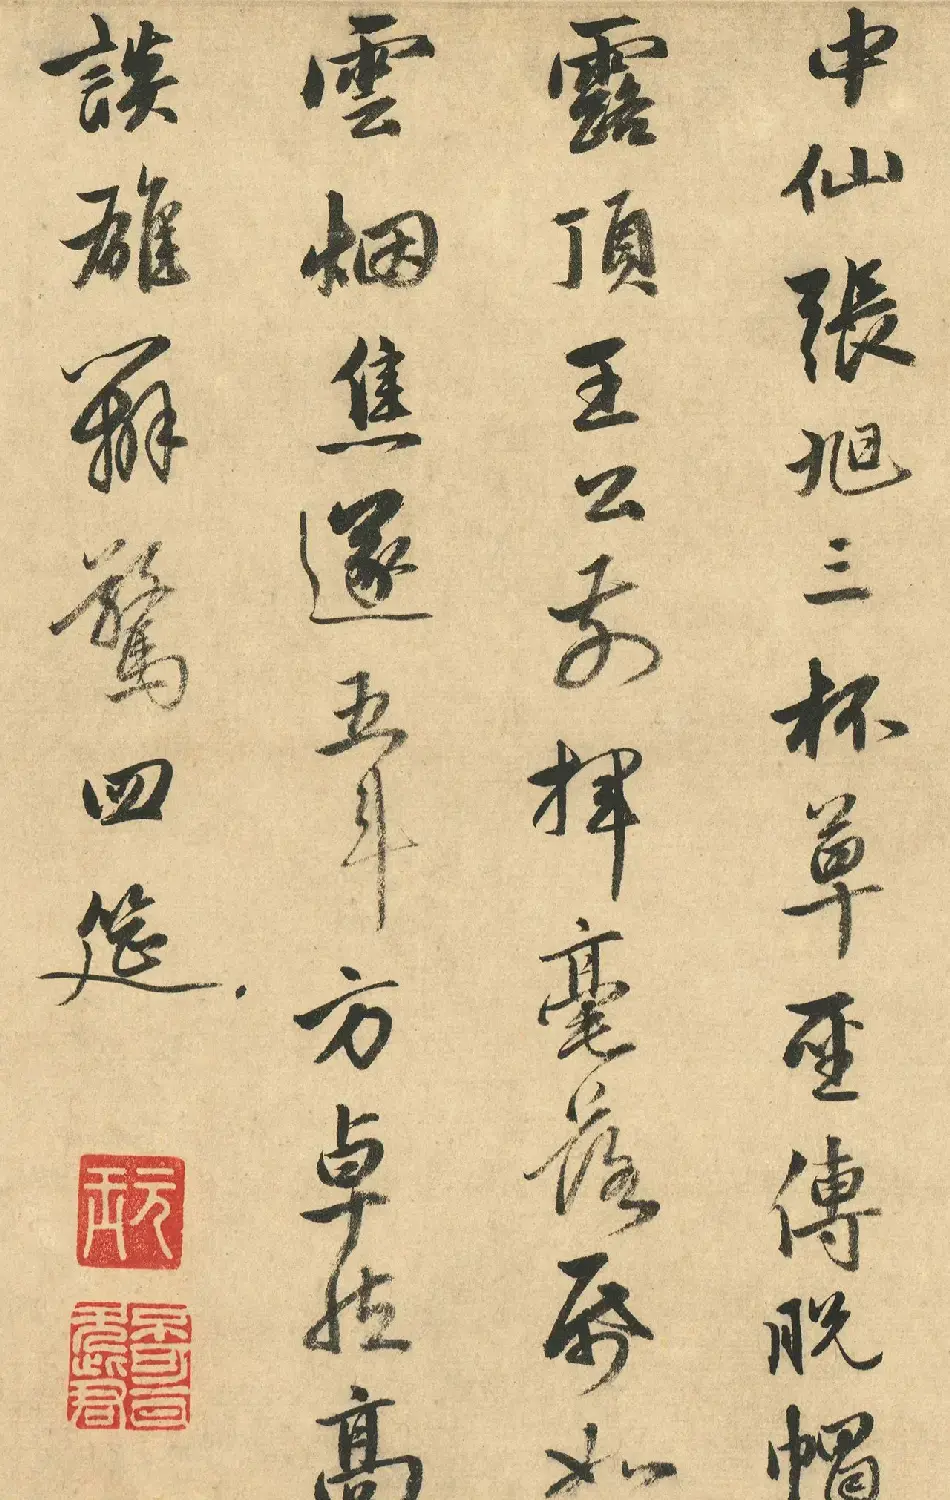 中仙張旭三杯草聖傳脫帽
露頂王公前揮毫落帋如
雲烟焦遂五斗方卓然高
談雄辯驚四筵